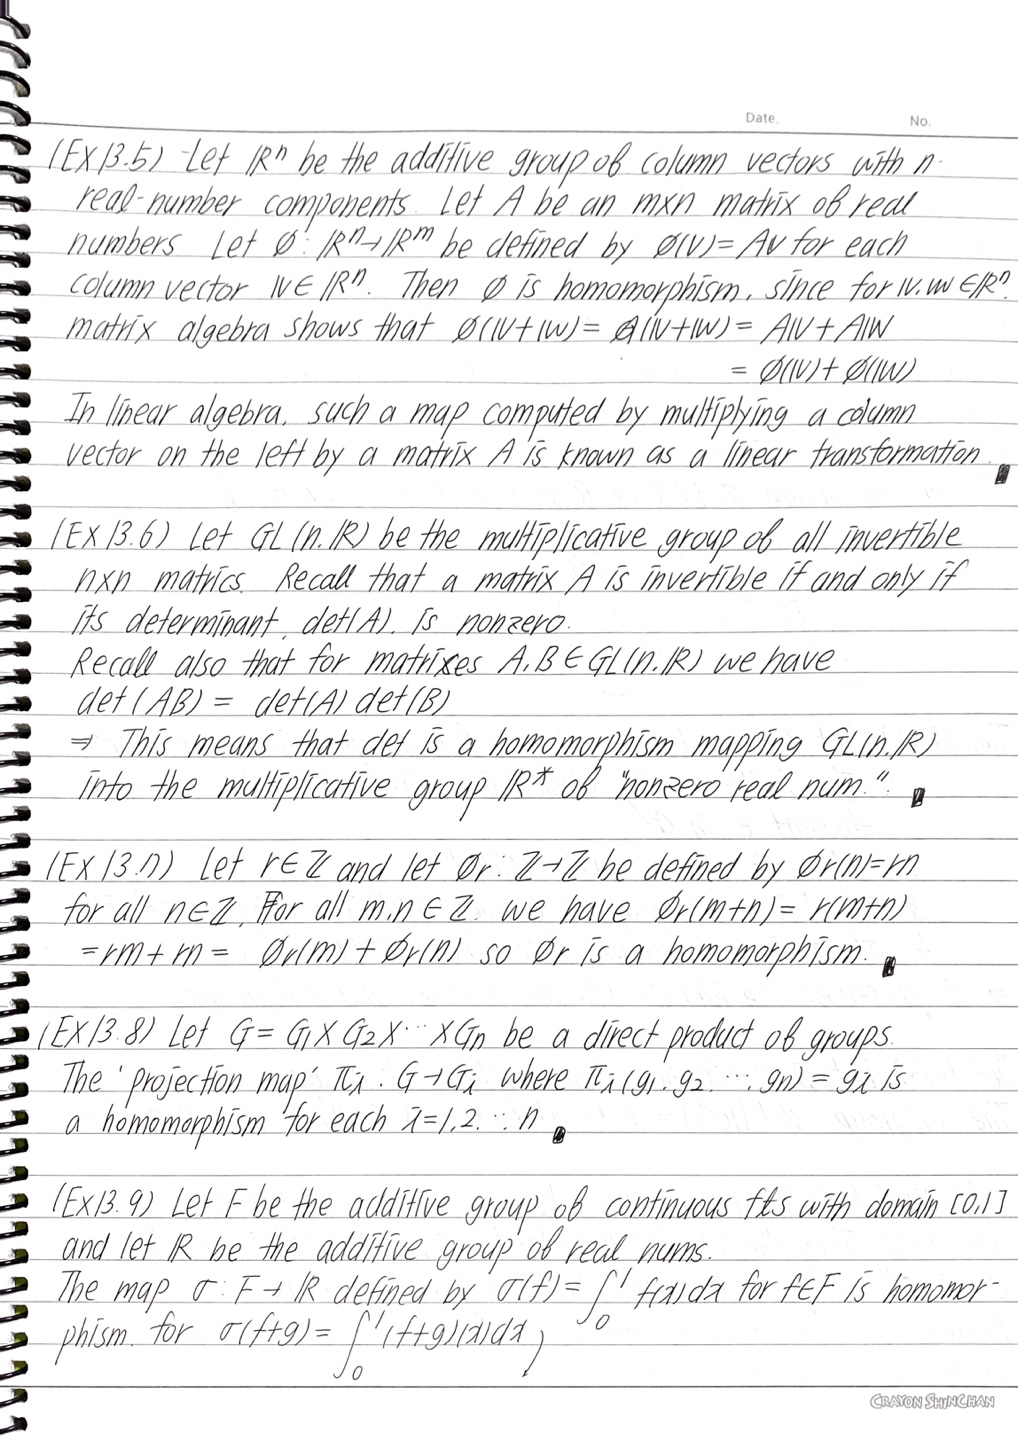 Date. No.
(Ex 13.5) Let ℝⁿ be the additive group of column vectors with n-
real-number components. Let A be an m×n matrix of real
numbers. Let ∅ : ℝⁿ→ℝᵐ be defined by ∅(v) = Av for each
column vector 𝕧 ∈ ℝⁿ. Then ∅ is homomorphism, since for 𝕧, 𝕨 ∈ ℝⁿ,
matrix algebra shows that ∅(𝕧+𝕨) = A(𝕧+𝕨) = A𝕧 + A𝕨
= ∅(𝕧) + ∅(𝕨)
In linear algebra, such a map computed by multiplying a column
vector on the left by a matrix A is known as a linear transformation.
(Ex 13.6) Let GL(n.ℝ) be the multiplicative group of all invertible
n×n matrics. Recall that a matrix A is invertible if and only if
its determinant, det(A), is nonzero.
Recall also that for matrixes A.B ∈ GL(n.ℝ) we have
det(AB) = det(A) det(B)
⇒ This means that det is a homomorphism mapping GL(n.ℝ)
into the multiplicative group ℝ* of "nonzero real num.".
(Ex 13.7) Let r∈ℤ and let ∅r : ℤ→ℤ be defined by ∅r(n)=rn
for all n∈ℤ. For all m,n ∈ ℤ. we have ∅r(m+n) = r(m+n)
= rm + rn = ∅r(m) + ∅r(n) so ∅r is a homomorphism.
(Ex 13.8) Let G = G₁ × G₂ × ⋯ × Gn be a direct product of groups.
The 'projection map' πi : G→Gi where πi(g₁. g₂. ⋯. gn) = gi is
a homomorphism for each i=1,2. ⋯. n.
(Ex 13.9) Let F be the additive group of continuous fts with domain [0,1]
and let ℝ be the additive group of real nums.
The map σ : F → ℝ defined by σ(f) = ∫₀¹ f(x)dx for f∈F is homomor-
phism. for σ(f+g) = ∫₀¹ (f+g)(x)dx
CRAYON SHINCHAN